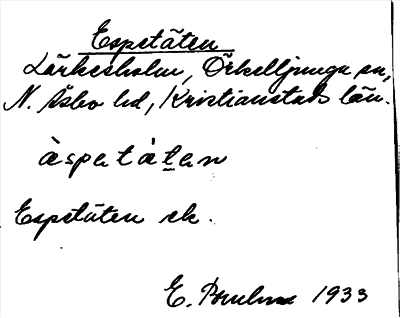 Espetäten
Lärkesholm, Örkelljunga sn,
N. Åsbo hd, Kristianstads län.
àspatá̀tan
Espetäten ek.
E. 1933